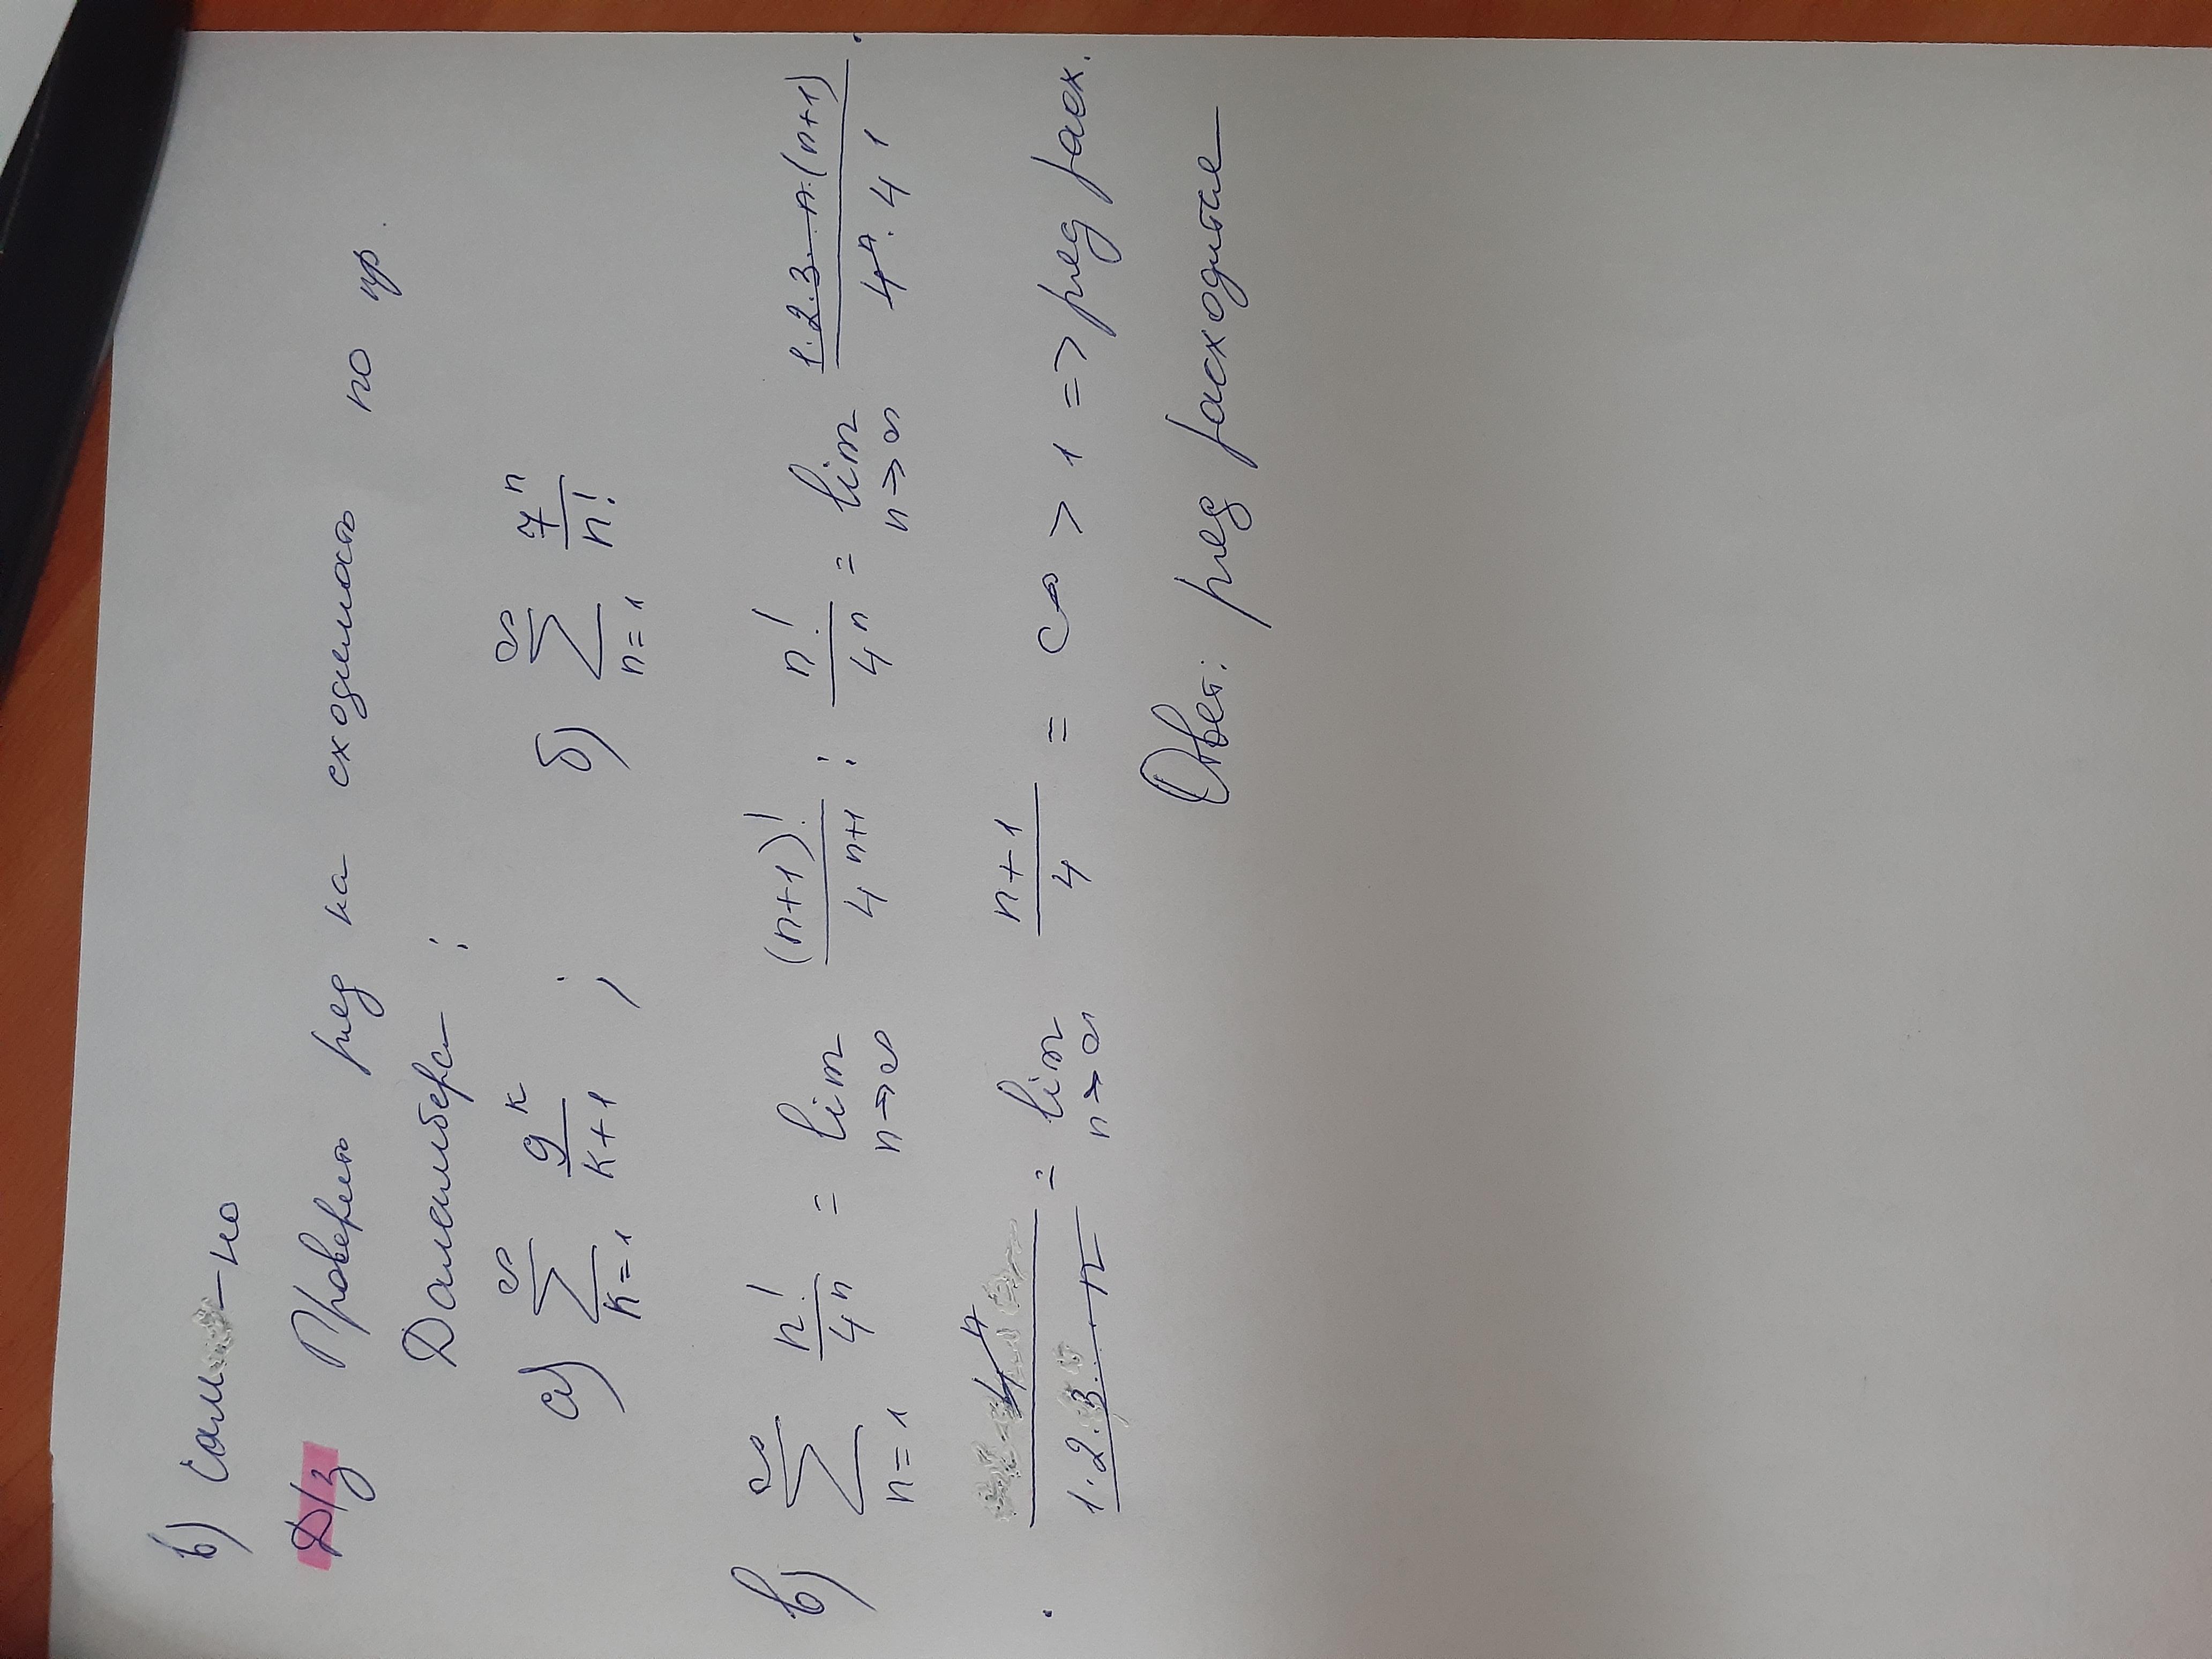 в) Сам-но
Д/з Проверить ряд на сходимость по пр.
Даламбера :
а) ∑_{k=1}^{∞} 9^k/(k+1) ; б) ∑_{n=1}^{∞} 7^n/n!
в) ∑_{n=1}^{∞} n!/4^n = lim_{n→∞} (n+1)!/4^{n+1} : n!/4^n = lim_{n→∞} 1·2·3···n·(n+1)/(4^n·4^1) ·
· 4^n/(1·2·3···n) = lim_{n→∞} (n+1)/4 = ∞ > 1 => ряд расх.
Ответ: ряд расходится